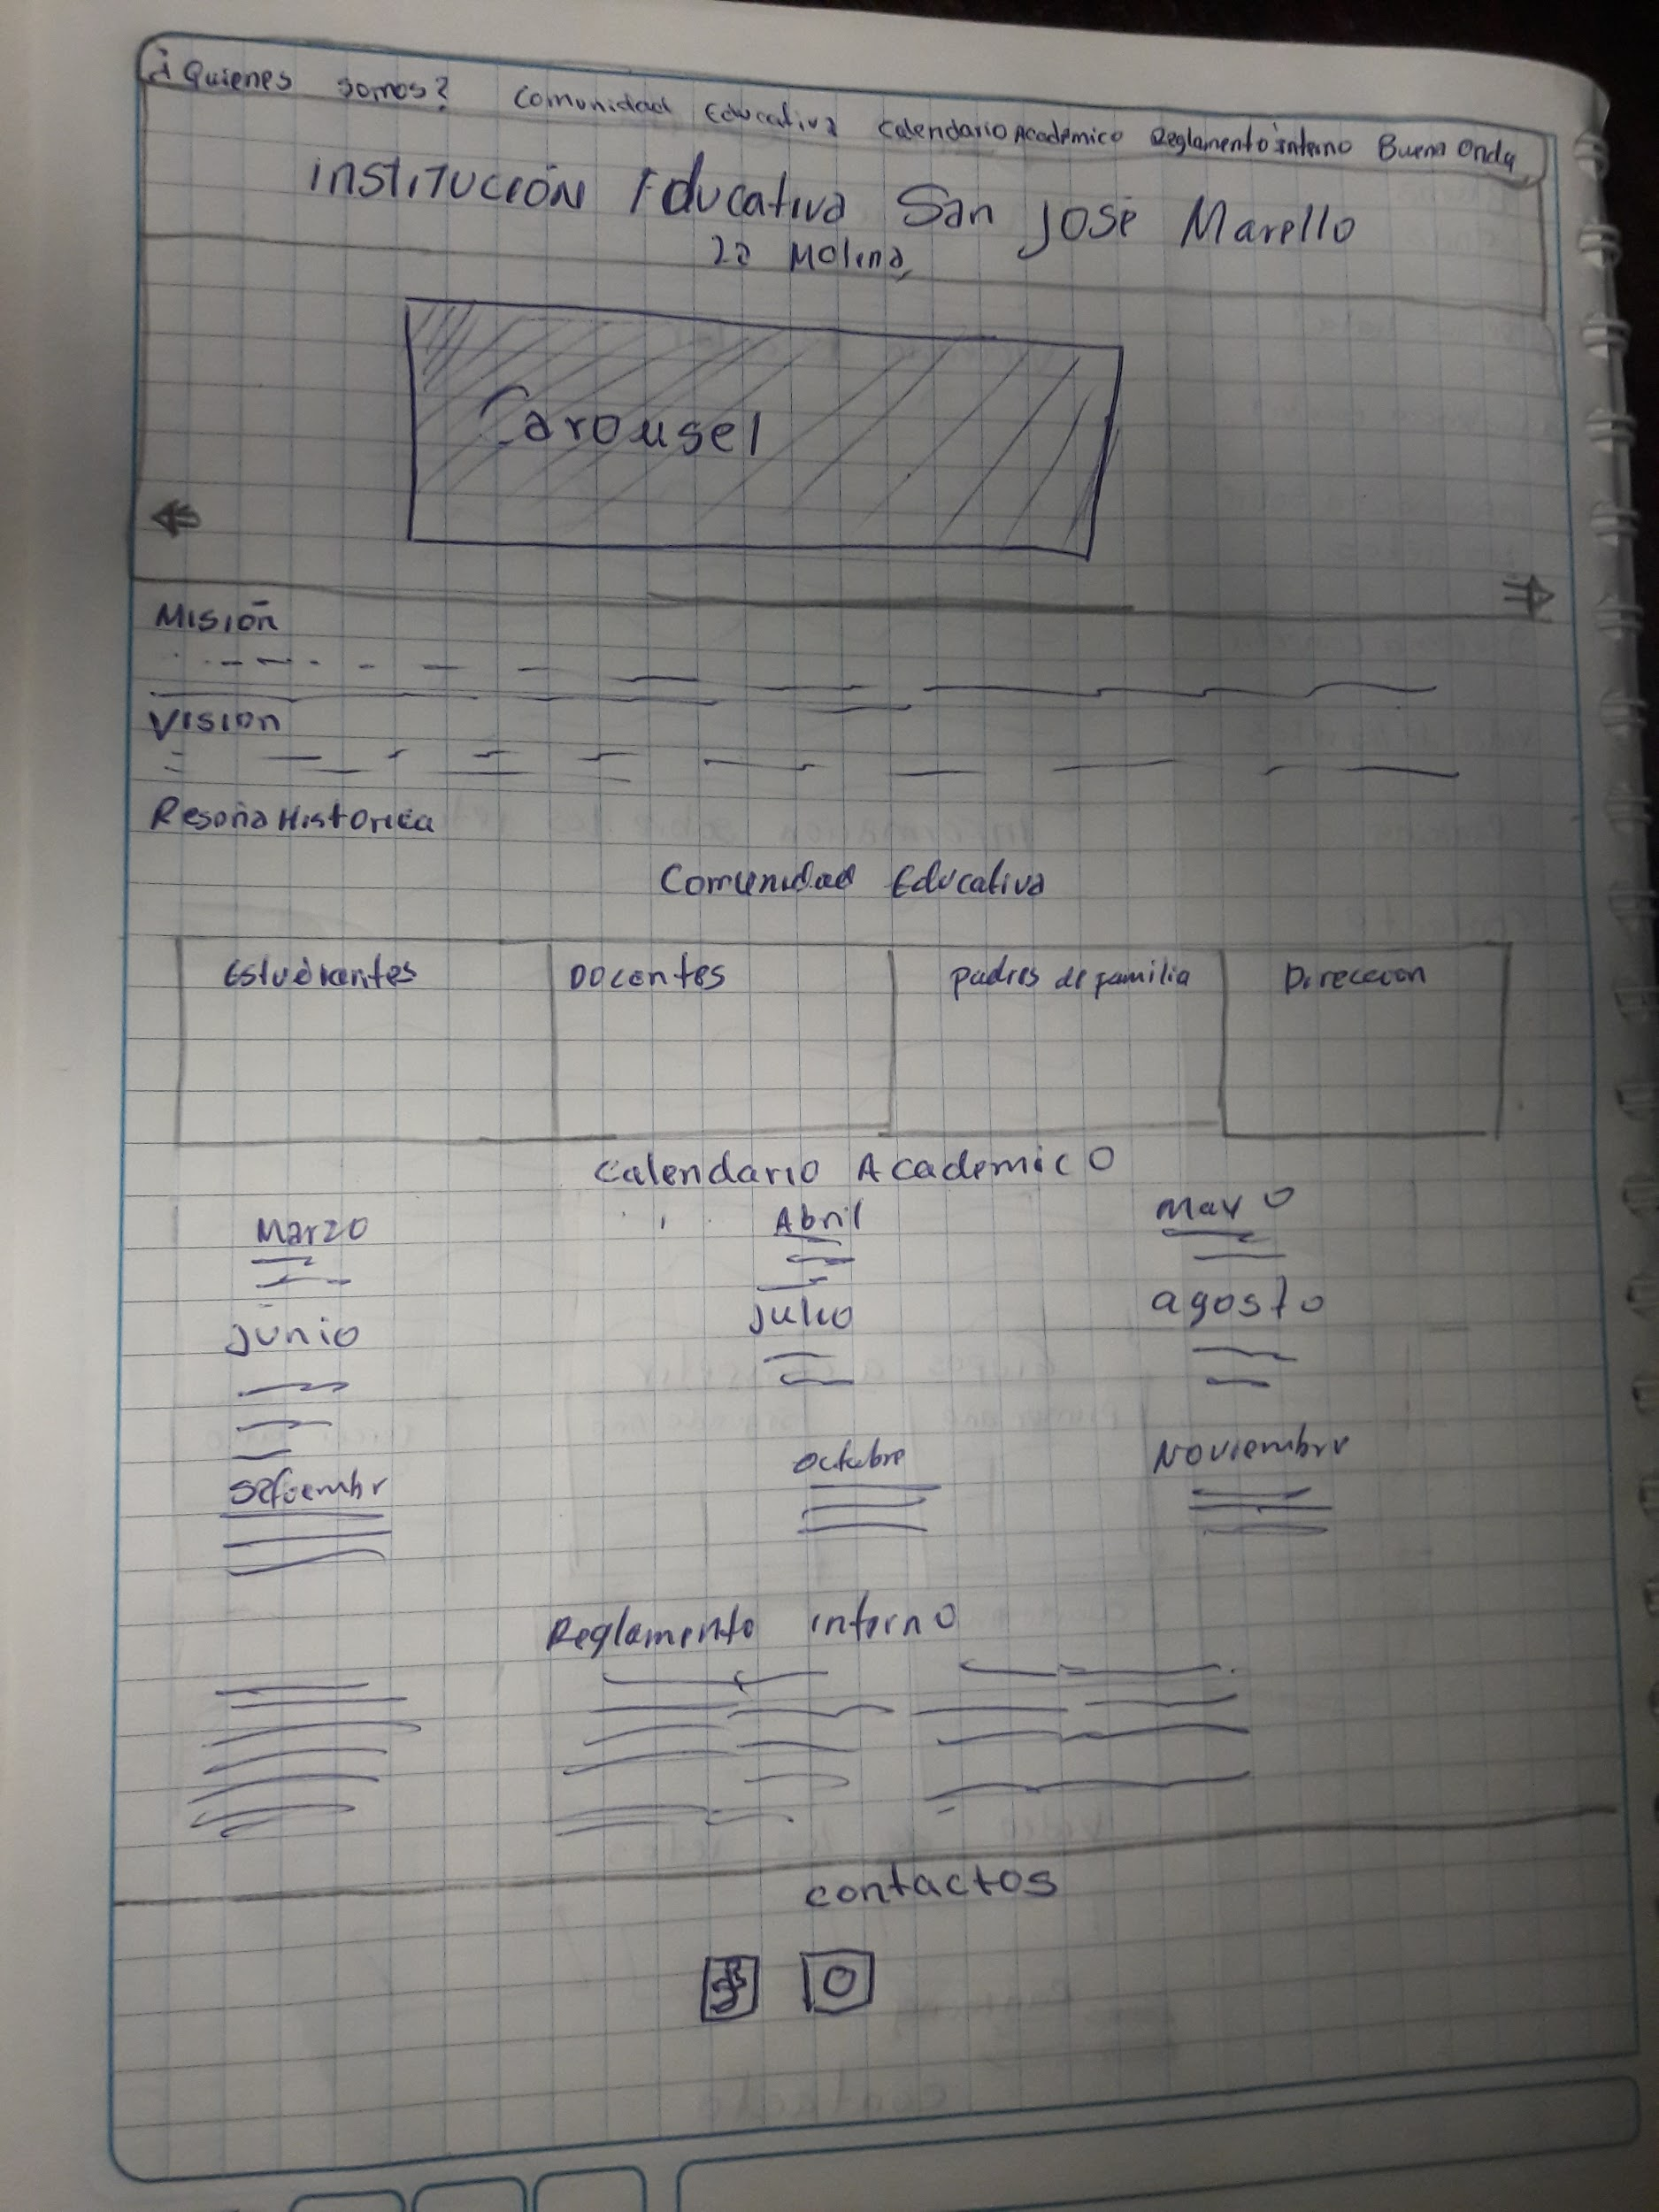 ¿Quienes somos? Comunidad Educativa Calendario Académico Reglamento interno Buena Onda
INSTITUCIÓN Educativa San José Marello
La Molina
Carousel
Misión
Visión
Reseña Historica
Comunidad Educativa
Estudiantes Docentes padres de familia Direccion
Calendario Academico
Marzo Abril Mayo
junio julio agosto
Setiembr Octubre Noviembre
Reglamento interno
contactos